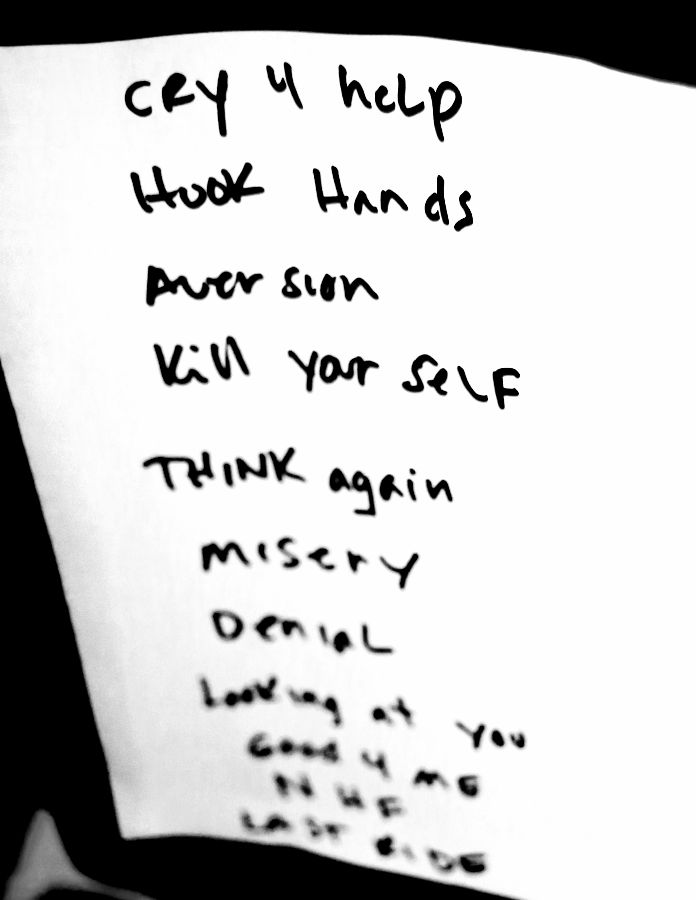 CRY 4 help
Hook Hands
Aversion
Kill Your SELF
THINK again
Misery
DeniaL
Looking at you
Good 4 ME
N H F
LAST RIDE